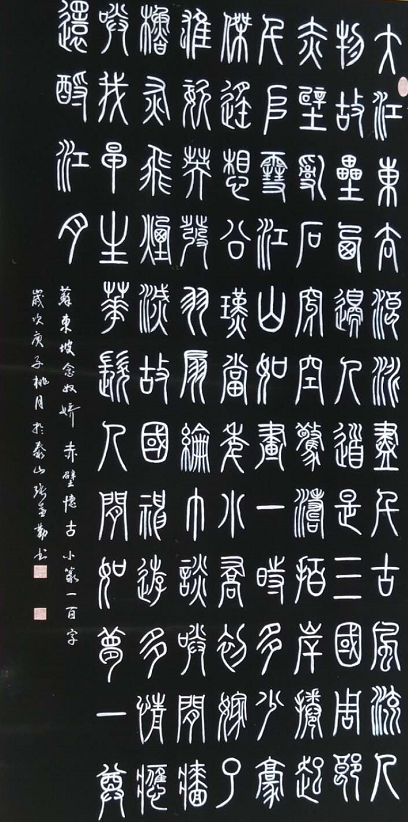 大江東去浪淘盡千古風流人
物故壘西邊人道是三國周郎
赤壁亂石穿空驚濤拍岸捲起
千堆雪江山如畫一時多少豪
傑遙想公瑾當年小喬初嫁了
雄姿英發羽扇綸巾談笑間檣
櫓灰飛煙滅故國神遊多情應
笑我早生華髮人間如夢一尊
還酹江月
蘇東坡念奴嬌 赤壁懷古 小篆一百字
歲次庚子桃月於泰山張書